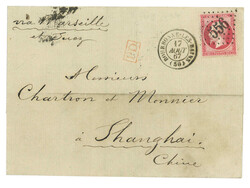 via Marseille
et Suez
P.D.
17
AOUT
67
(58)
Messieurs
Chartron et Monnier
à Shanghai.
Chine